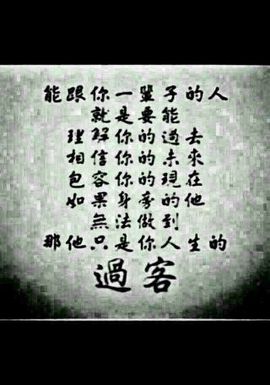 能跟你一輩子的人
就是要能
理解你的過去
相信你的未來
包容你的現在
如果身旁的他
無法做到
那他只是你人生的
過客